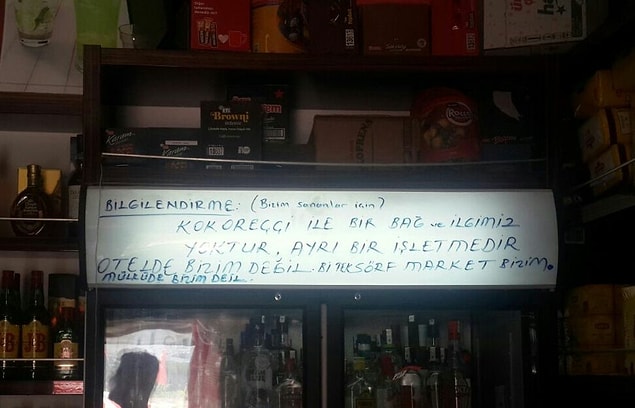 Browni
BİLGİLENDİRME: (Bizim sananlar için)
KOKOREÇÇİ İLE BİR BAĞ ve İLGİMİZ
YOKTUR, AYRI BİR İŞLETMEDİR
OTELDE BİZİM DEĞİL. Bİ TEK SÖRF MARKET BİZİM.
MÜLKÜDE BİZİM DEİL.